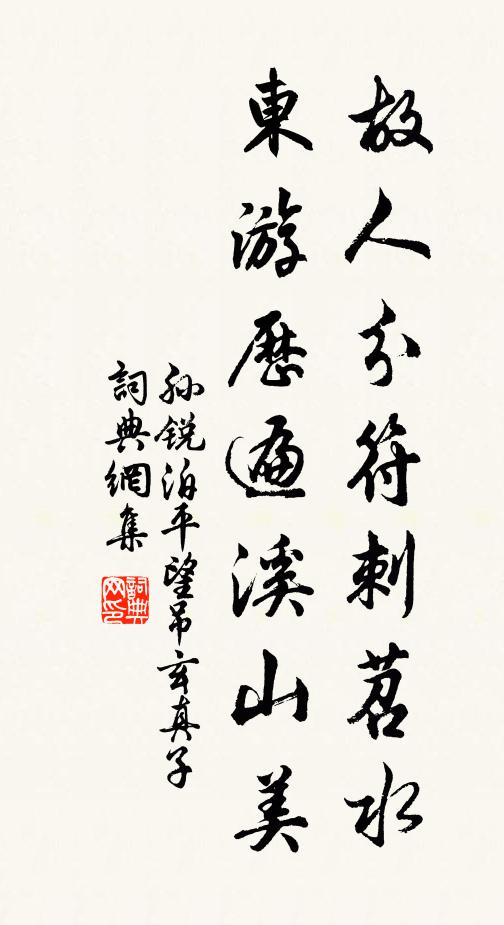 故人分符刺苕水
東游歷遍溪山美
孙锐泊平望吊玄真子
詞典網集
詞典
网印